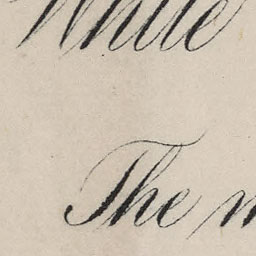 While
The